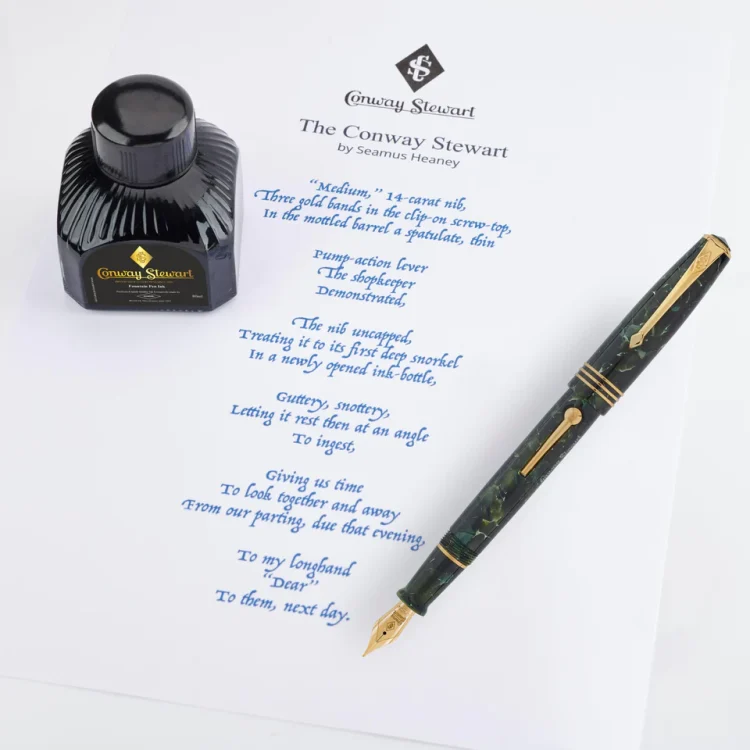 Conway Stewart
The Conway Stewart
by Seamus Heaney
“Medium,” 14-carat nib,
Three gold bands in the clip-on screw-top,
In the mottled barrel a spatulate, thin
Pump-action lever
The shopkeeper
Demonstrated,
The nib uncapped,
Treating it to its first deep snorkel
In a newly opened ink-bottle,
Guttery, snottery,
Letting it rest then at an angle
To ingest,
Giving us time
To look together and away
From our parting, due that evening,
To my longhand
“Dear”
To them, next day.
Conway Stewart
Fountain Pen Ink